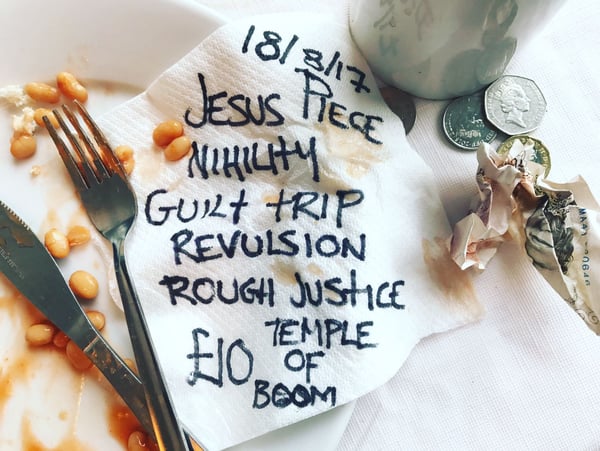 18/8/17
JESUS PIECE
NIHILITY
GUILT TRIP
REVULSION
ROUGH JUSTICE
£10 TEMPLE
OF
BOOM